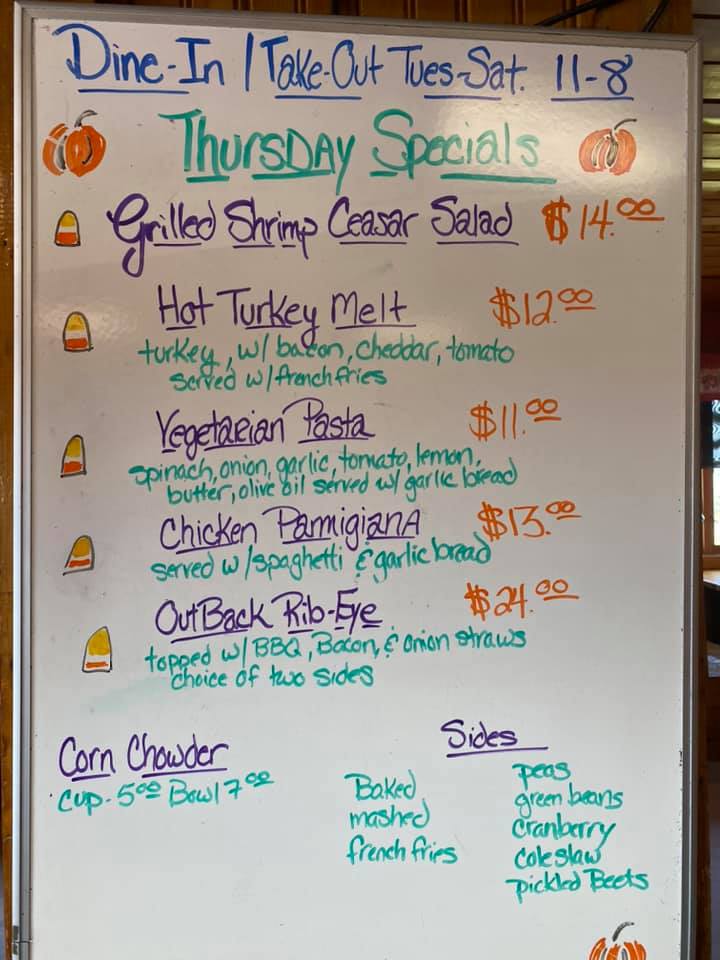 Dine-In / Take-Out Tues-Sat. 11-8
Thursday Specials
Grilled Shrimp Ceasar Salad $14.00
Hot Turkey Melt $12.00
turkey, w/ bacon, cheddar, tomato
served w/ french fries
Vegetarian Pasta $11.00
spinach, onion, garlic, tomato, lemon,
butter, olive oil served w/ garlic bread
Chicken Parmigiana $13.00
served w/ spaghetti & garlic bread
OutBack Rib-Eye $24.00
topped w/ BBQ, Bacon, & onion straws
choice of two sides
Corn Chowder
cup - 5.00 Bowl 7.00
Sides
Baked
mashed
french fries
peas
green beans
cranberry
coleslaw
pickled Beets